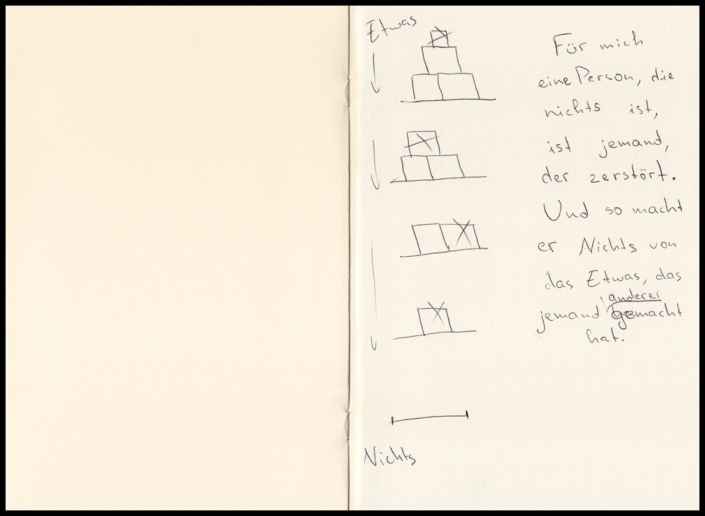 Etwas
Für mich
eine Person, die
nichts ist,
ist jemand,
der zerstört.
Und so macht
er Nichts von
das Etwas, das
anderer
jemand gemacht
hat.
Nichts